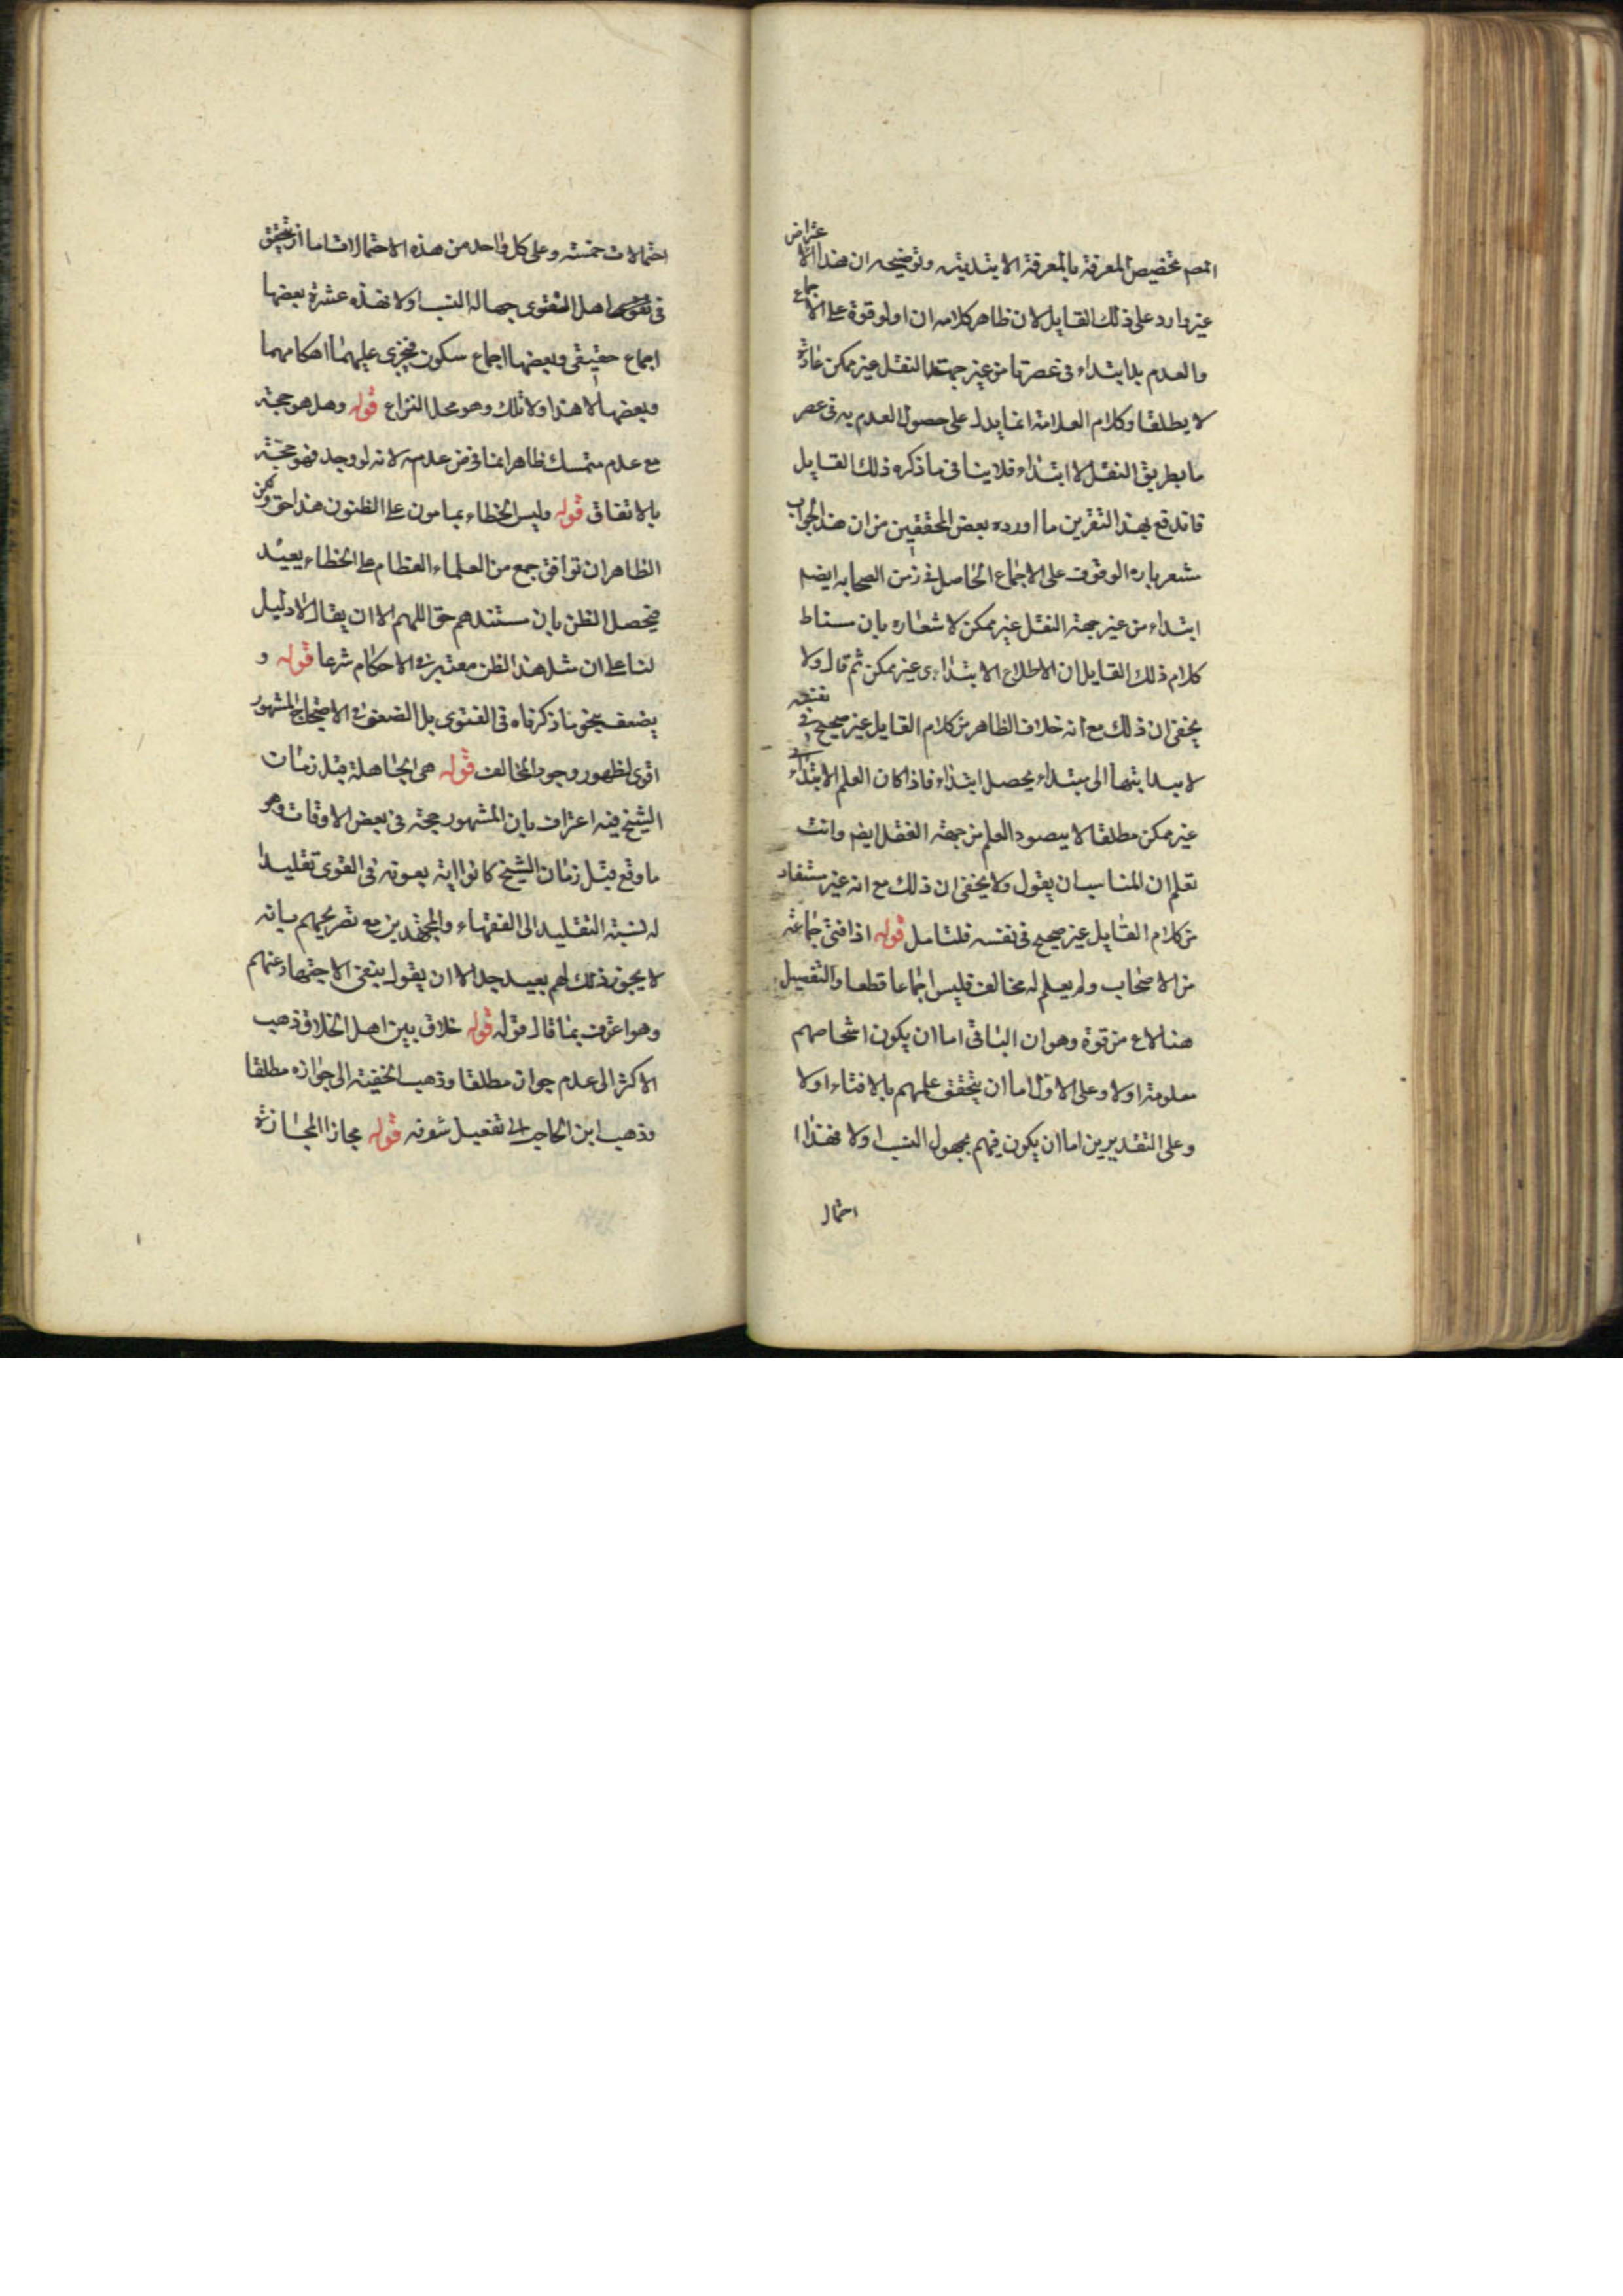 المصم تخصيص المعرفة بالمعرفة الابتدئية وتوضيحه ان هذا الاعتراض
غير وارد على ذلك القايل لان ظاهر كلامه ان اولوقوة على الاجماع
والعدم به ابتداء فى عصرنا من غير جهة النقل غير ممكن عادة
لا يطلقا وكلام العلامة انما يدل على حصول العدم به فى عصر
ما بطريق النقل لا ابتداء فلا ينافى ما ذكره ذلك القايل
فاندفع بهذا التقرير ما اورده بعض المحققين من ان هذا الجواب
مشعر باره الوقوف على الاجماع الحاصل فى زمن الصحابه ايضم
ابتداء من غير جهة النقل غير ممكن لا شعاره بان مسناط
كلام ذلك القايل ان الاطلاع الابتداءى غير ممكن ثم قال ولا
يخفى ان ذلك مع انه خلاف الظاهر من كلام القايل غير صحيح فى نفسه
لا بد انتها الى مبتداء يحصل ابتداء فاذا كان العلم الابتداءى
غير ممكن مطلقا لا يبصود العلم من جهة الفقل ايضم وانت
تعلم ان المناسب ان يقول ولا يخفى ان ذلك مع انه غير مستفاد
من كلام القايل غير صحيح فى نفسه فلتامل قوله اذا افتى جماعة
من الاصحاب ولم يعلم له مخالف فليس اجماعا قطعا والتفصيل
هنا لاع من قوة وهو ان الباقى اما ان يكون اشخاصهم
معلومة اولا وعلى الاول اما ان يتحقق علمهم بالافتاء اولا
وعلى التقديرين اما ان يكون فيهم مجهول النسب اولا فهذا
احتمال
احتمالات خمسة وعلى كل واحد من هذه الاحتمالات اما ان يتحقق
فى اهل الفتوى جهالة النسب اولا فهذه عشرة بعضها
اجماع حقيقى وبعضها اجماع سكوتى فيجرى عليهما احكامهما
وبعضها لا هذا ولا تلك وهو محل النزاع قوله وهل هو حجة
مع عدم متمسك ظاهر انما فرض عدمه لانه لو وجد فهو حجة
بالاتفاق قوله وليس الخطاء بمامون على الظنون هذا حق ولكن
الظاهر ان توافق جمع من العلماء العظام على الخطاء بعيد
فيحصل الظن بان مستندهم حق اللهم الا ان يقال لا دليل
لنا على ان مثل هذا الظن معتبر فى الاحكام شرعا قوله و
يضعف بنحو ما ذكرناه فى الفتوى بل الضعف فى الاحتجاج المشهور
اقوى لظهور وجود المخالف قوله هى الجاهلة قبل زمان
الشيخ فيه اعتراف بان المشهور حجة فى بعض الاوقات وهو
ما وقع قبل زمان الشيخ كانوا يتبعونه فى الفتوى تقليدا
له لنسبة التقليد الى الفقهاء والمجتهدين مع تصريحهم بانه
لا يجوز ذلك لهم بعيد جدا الا ان يقول بنفى الاجتهاد عنهم
وهو اعرف بما قال قوله قوله خلاف بين اهل الخلاف ذهب
الاكثر الى عدم جوازه مطلقا وذهب الحنفية الى جوازه مطلقا
وذهب ابن الحاجب الى تفصيل ستعرفه قوله مجازا المجازة